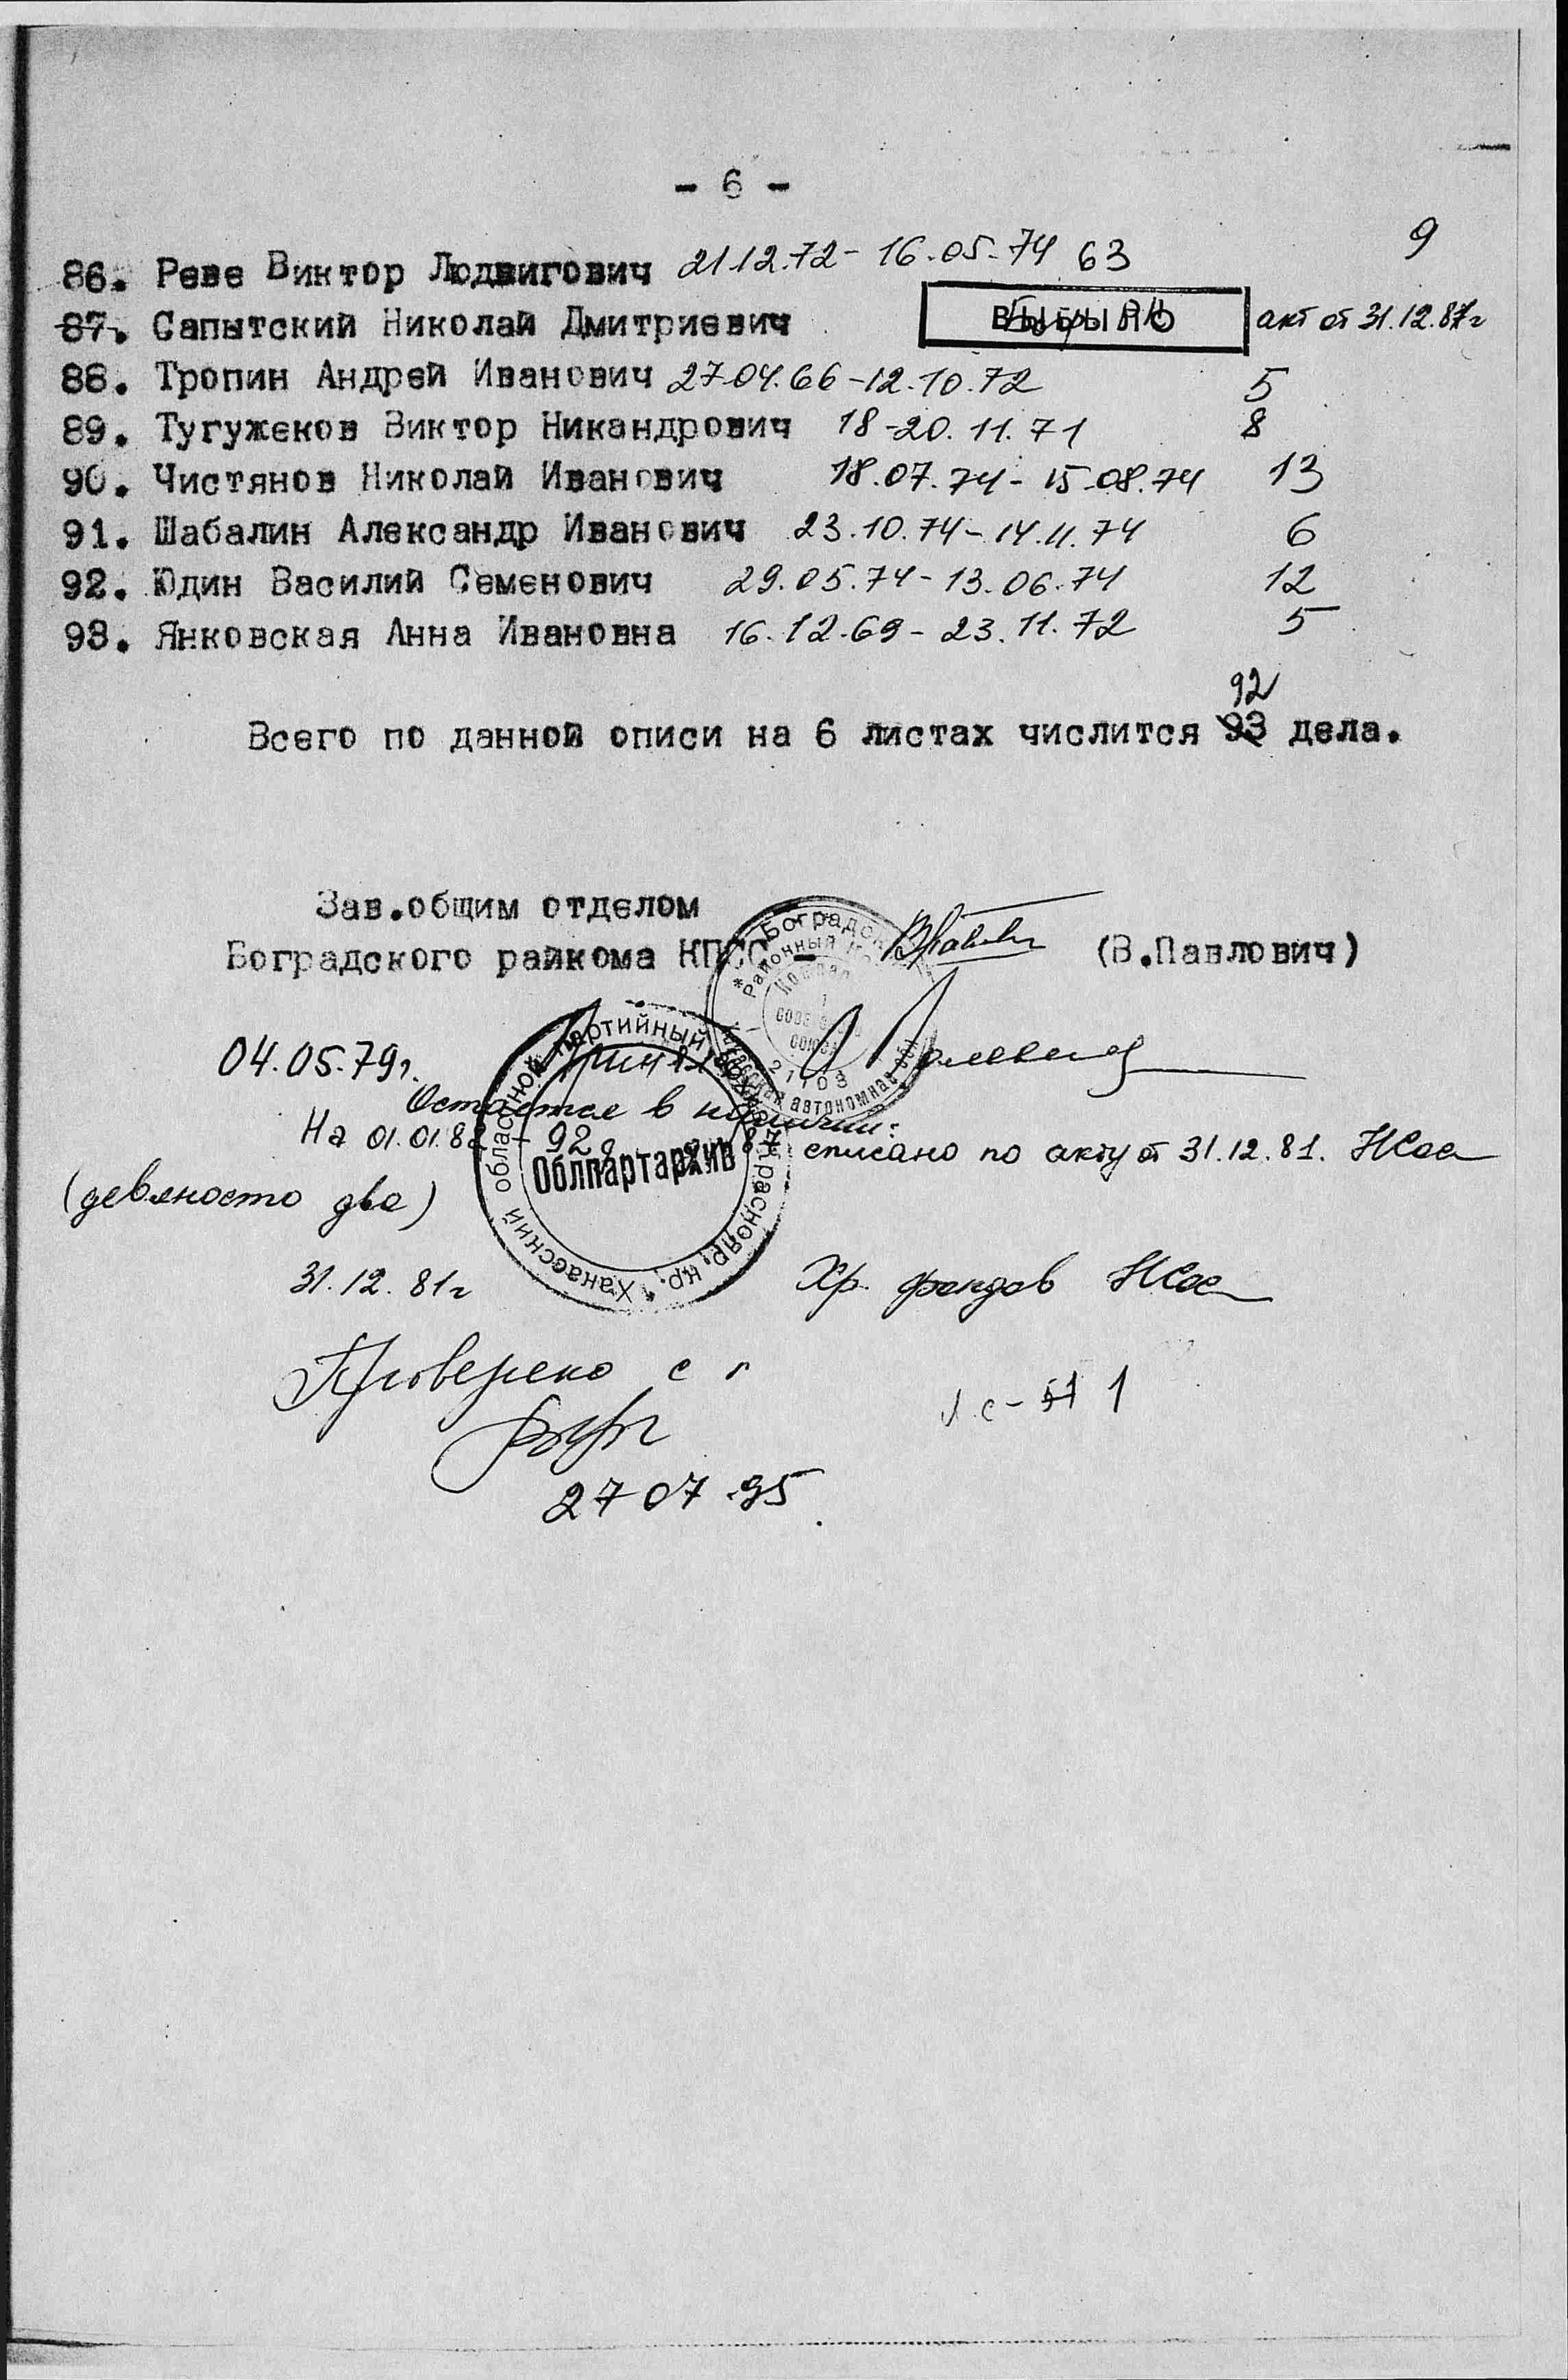 - 6 -
9
86. Реве Виктор Людвигович 21.12.72 - 16.05.74 63
87. Сапытский Николай Дмитриевич ВЫБЫЛО акт от 31.12.87г
88. Тропин Андрей Иванович 27.04.66 - 12.10.72 5
89. Тугужеков Виктор Никандрович 18-20.11.71 8
90. Чистянов Николай Иванович 18.07.74 - 15.08.74 13
91. Шабалин Александр Иванович 23.10.74 - 14.11.74 6
92. Юдин Василий Семенович 29.05.74 - 13.06.74 12
93. Янковская Анна Ивановна 16.12.69 - 23.11.72 5
92
Всего по данной описи на 6 листах числится 93 дела.
Зав.общим отделом
Боградского райкома КПСС - (В.Павлович)
04.05.79г.
Остается в наличии:
На 01.01.82 - 92 списано по акту от 31.12.81.
(девяносто два)
Хакасский областной партийный архив Краснояр. кр.
Облпартархив
31.12.81г Хр. фондов
Проверено
27 07.95